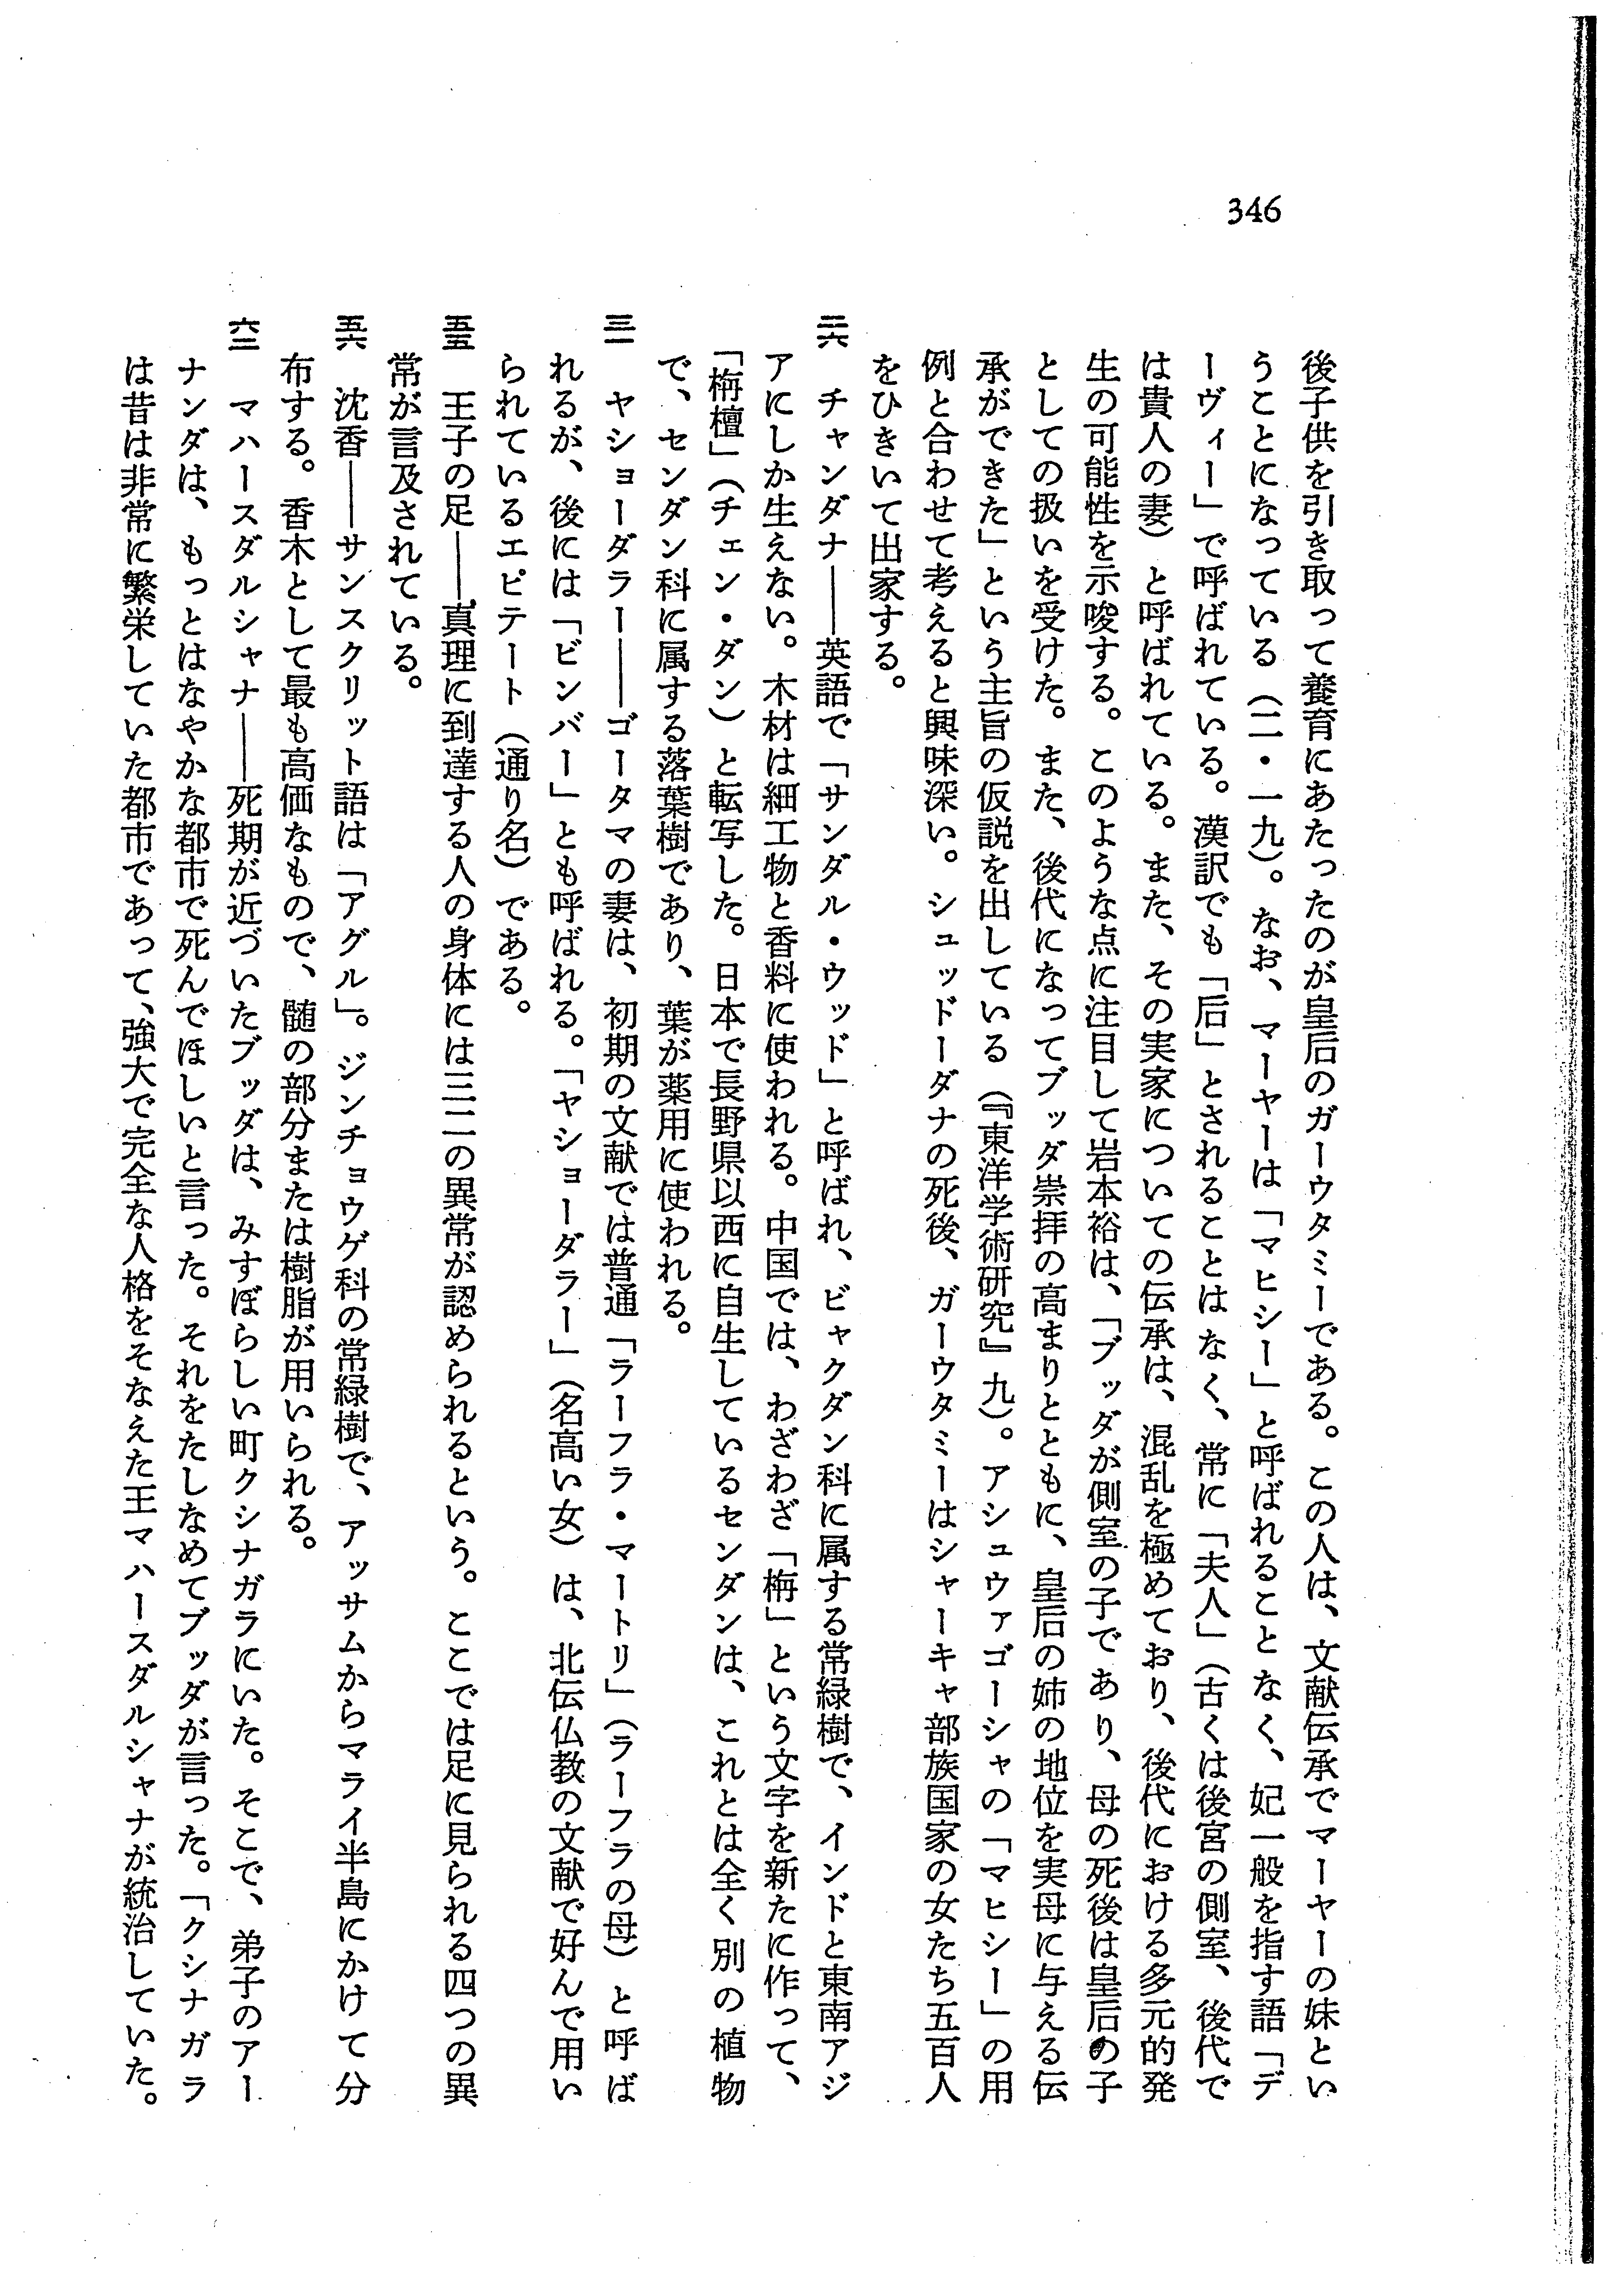 346
後子供を引き取って養育にあたったのが皇后のガーウタミーである。この人は、文献伝承でマーヤーの妹とい
うことになっている（二・一九）。なお、マーヤーは「マヒシー」と呼ばれることなく、妃一般を指す語「デ
ーヴィー」で呼ばれている。漢訳でも「后」とされることはなく、常に「夫人」（古くは後宮の側室、後代で
は貴人の妻）と呼ばれている。また、その実家についての伝承は、混乱を極めており、後代における多元的発
生の可能性を示唆する。このような点に注目して岩本裕は、「ブッダが側室の子であり、母の死後は皇后の子
としての扱いを受けた。また、後代になってブッダ崇拝の高まりとともに、皇后の姉の地位を実母に与える伝
承ができた」という主旨の仮説を出している（『東洋学術研究』九）。アシュヴァゴーシャの「マヒシー」の用
例と合わせて考えると興味深い。シュッドーダナの死後、ガーウタミーはシャーキャ部族国家の女たち五百人
をひきいて出家する。
二六　チャンダナ——英語で「サンダル・ウッド」と呼ばれ、ビャクダン科に属する常緑樹で、インドと東南アジ
アにしか生えない。木材は細工物と香料に使われる。中国では、わざわざ「栴」という文字を新たに作って、
「栴檀」（チェン・ダン）と転写した。日本で長野県以西に自生しているセンダンは、これとは全く別の植物
で、センダン科に属する落葉樹であり、葉が薬用に使われる。
三一　ヤショーダラー——ゴータマの妻は、初期の文献では普通「ラーフラ・マートリ」（ラーフラの母）と呼ば
れるが、後には「ビンバー」とも呼ばれる。「ヤショーダラー」（名高い女）は、北伝仏教の文献で好んで用い
られているエピテート（通り名）である。
五五　王子の足——真理に到達する人の身体には三二の異常が認められるという。ここでは足に見られる四つの異
常が言及されている。
五六　沈香——サンスクリット語は「アグル」。ジンチョウゲ科の常緑樹で、アッサムからマライ半島にかけて分
布する。香木として最も高価なもので、髄の部分または樹脂が用いられる。
六二　マハースダルシャナ——死期が近づいたブッダは、みすぼらしい町クシナガラにいた。そこで、弟子のアー
ナンダは、もっとはなやかな都市で死んでほしいと言った。それをたしなめてブッダが言った。「クシナガラ
は昔は非常に繁栄していた都市であって、強大で完全な人格をそなえた王マハースダルシャナが統治していた。